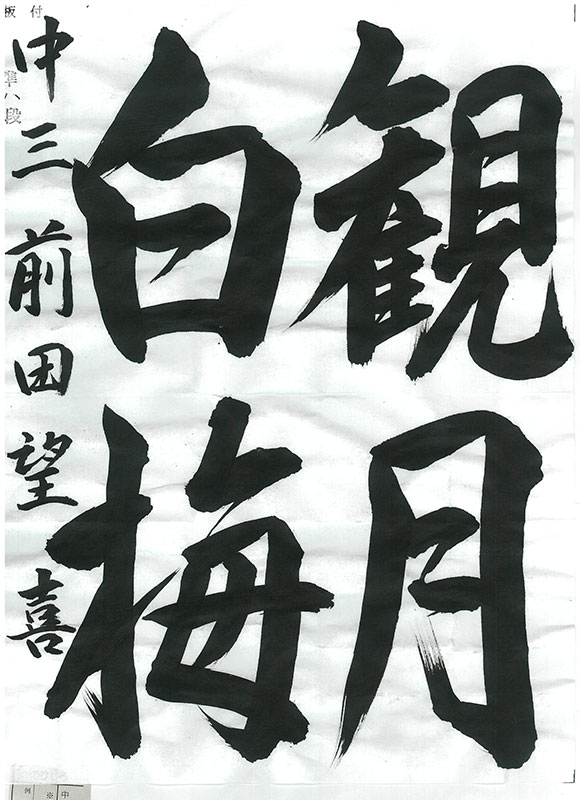 観月
白梅
中三 前田望喜
板付
準八段